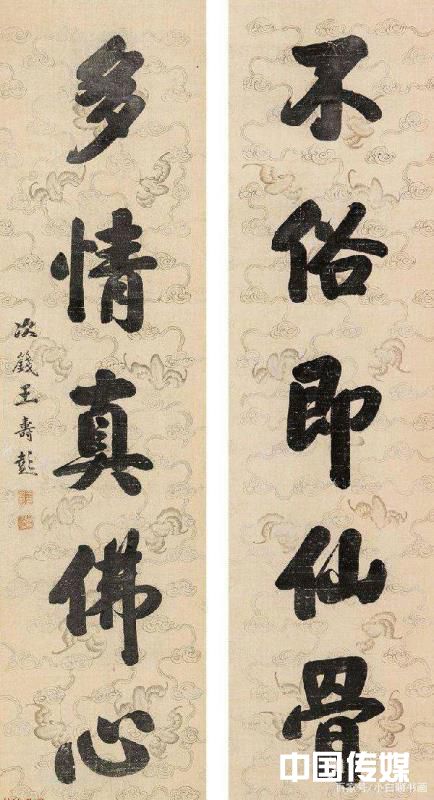 不俗即仙骨
多情真佛心
次籛王壽彭
中国传媒
百家号/小白聊书画